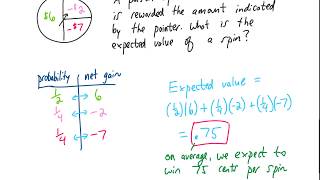 $6
-$2
-$7
is rewarded the amount indicated
by the pointer. what is the
expected value of a spin?
probability net gain
1/2 ↔ 6
1/4 ↔ -2
1/4 ↔ -7
Expected value =
(1/2)(6) + (1/4)(-2) + (1/4)(-7)
= .75
on average, we expect to
win 75 cents per spin